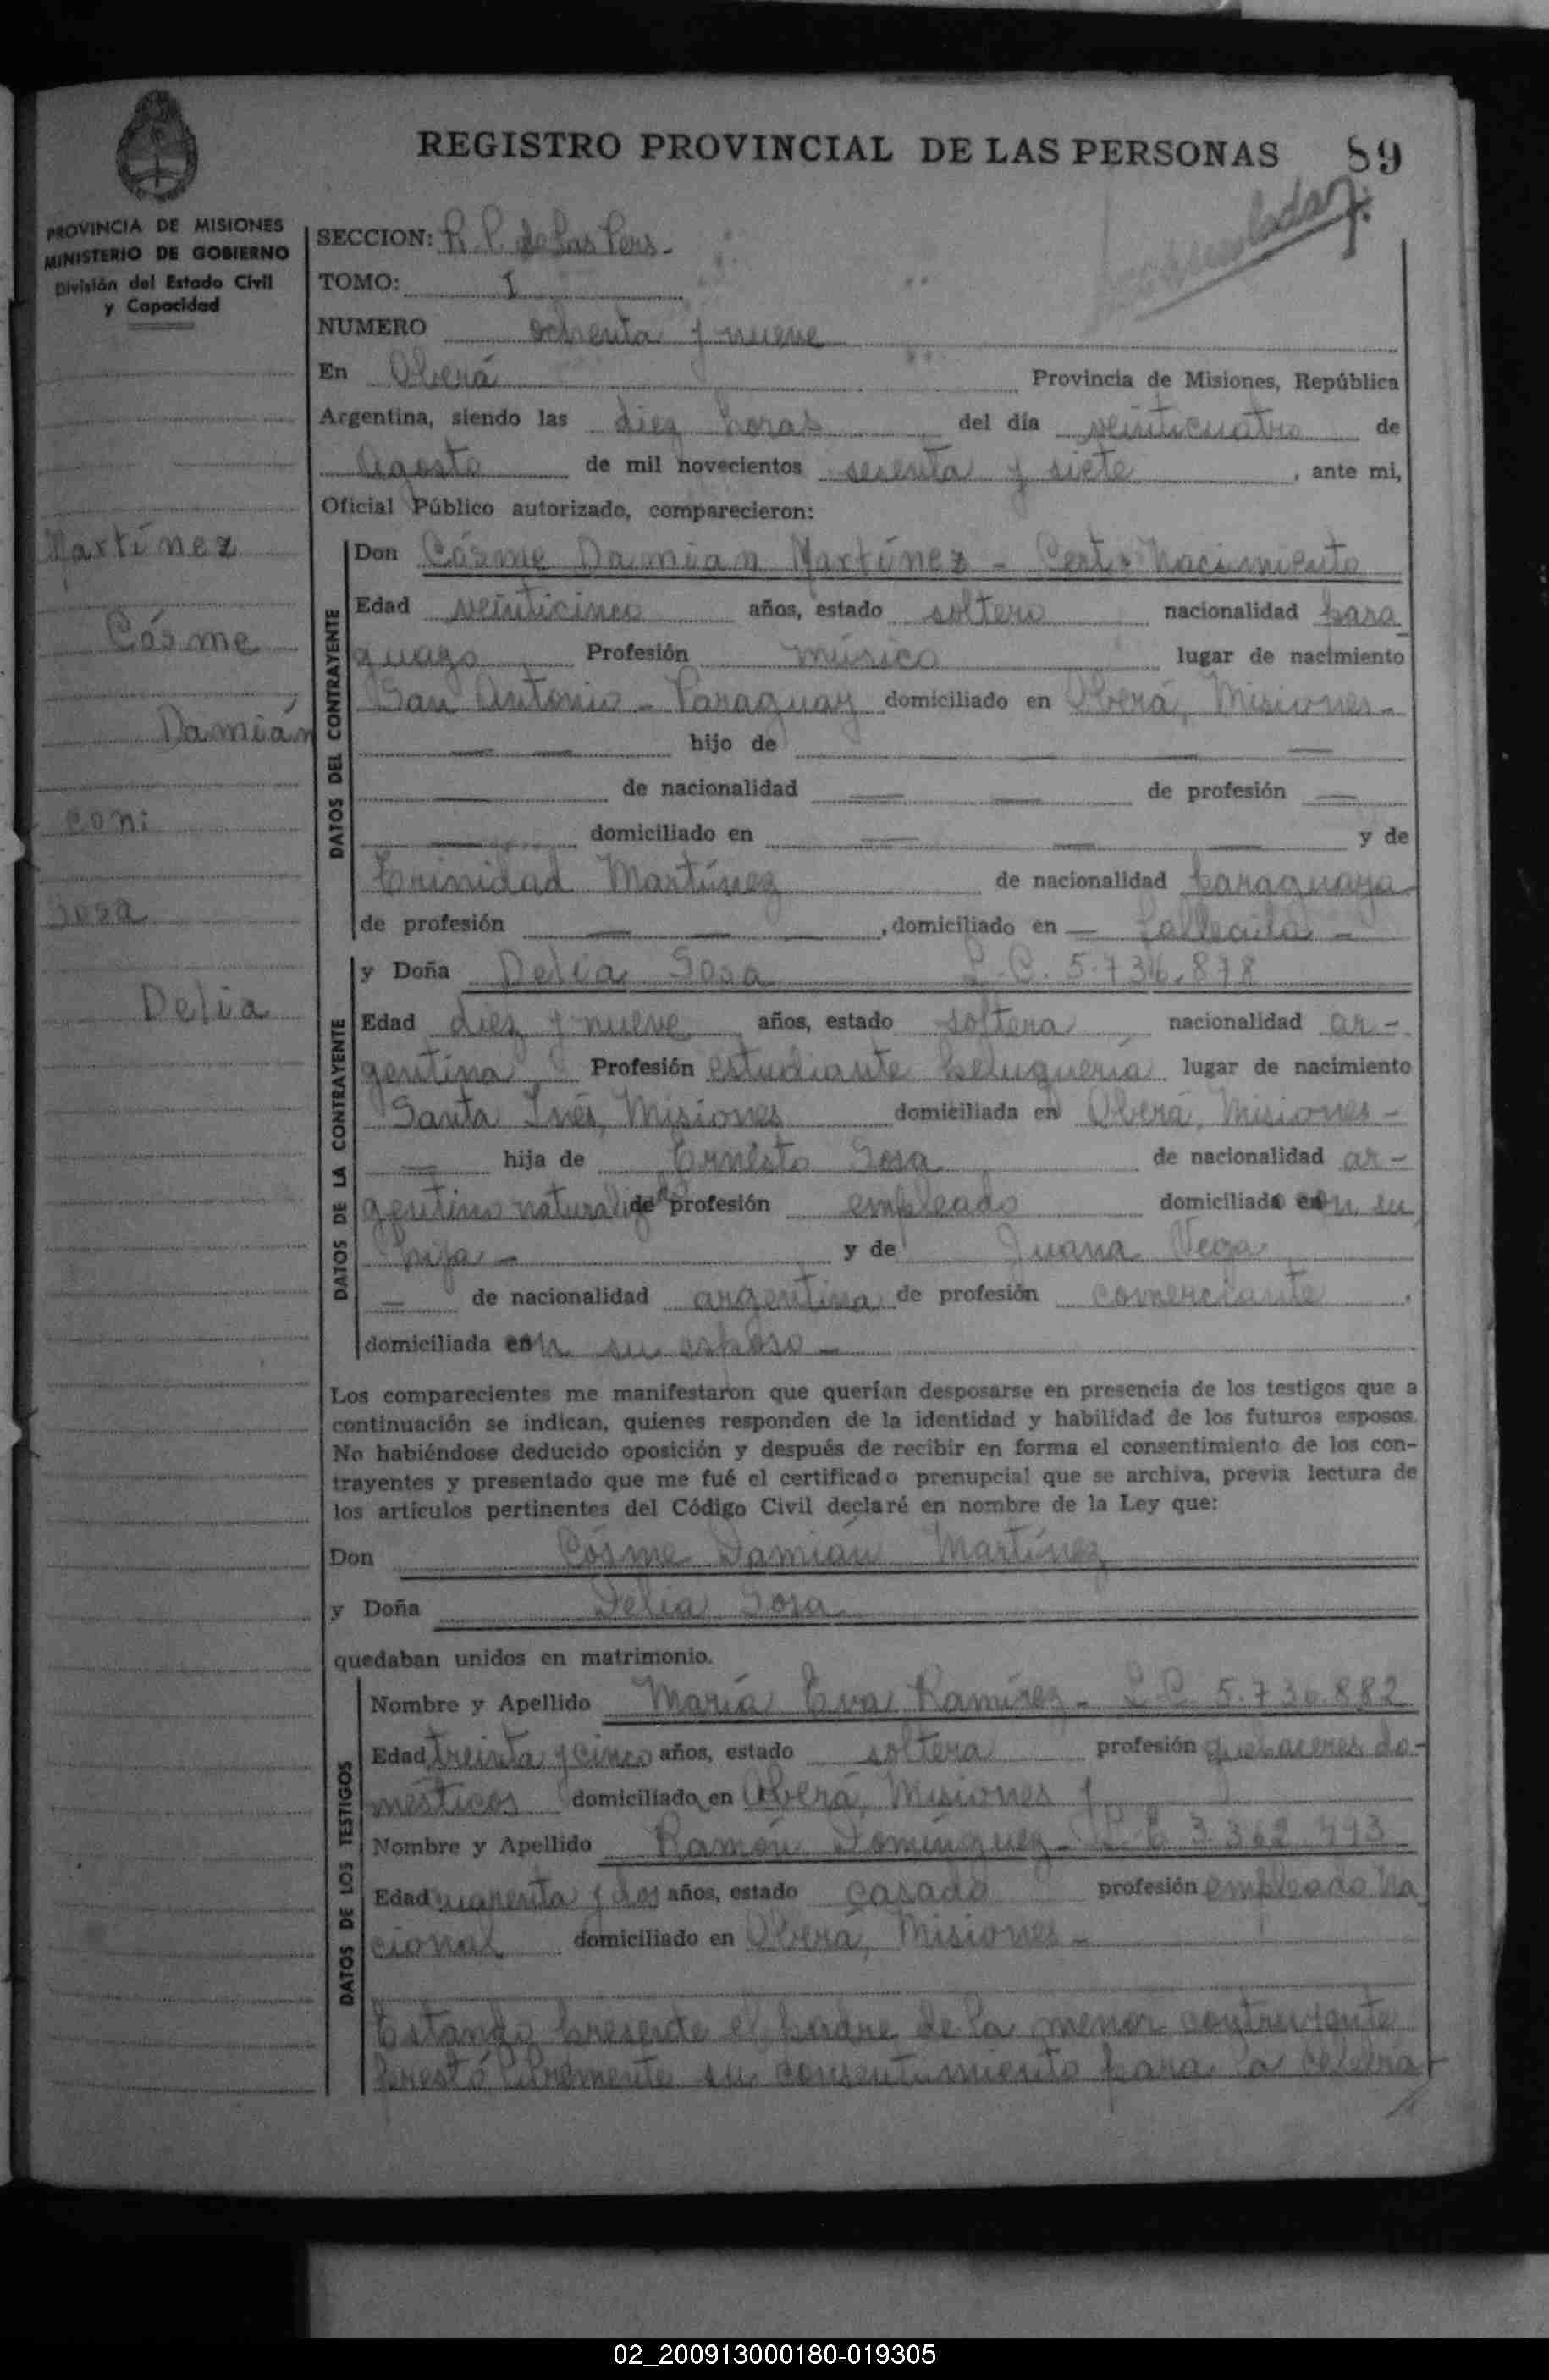 REGISTRO PROVINCIAL DE LAS PERSONAS 89
PROVINCIA DE MISIONES
MINISTERIO DE GOBIERNO
División del Estado Civil
y Capacidad
SECCION: R. P. de las Pers.
TOMO: I
NUMERO ochenta y nueve
En Oberá Provincia de Misiones, República
Argentina, siendo las diez horas del día veinticuatro de
Agosto de mil novecientos sesenta y siete, ante mi,
Oficial Público autorizado, comparecieron:
Martínez
Cósme
Damián
con:
Sosa
Delia
DATOS DEL CONTRAYENTE
Don Cósme Damián Martínez - Cert. Nacimiento
Edad veinticinco años, estado soltero nacionalidad para
guayo Profesión músico lugar de nacimiento
San Antonio - Paraguay domiciliado en Oberá, Misiones -
— — hijo de — —
— de nacionalidad — — de profesión —
— domiciliado en — — — y de
Trinidad Martínez de nacionalidad paraguaya
de profesión — — —, domiciliado en — Fallecida -
DATOS DE LA CONTRAYENTE
y Doña Delia Sosa L. C. 5.736.878
Edad diez y nueve años, estado soltera nacionalidad ar-
gentina Profesión estudiante peluquería lugar de nacimiento
Santa Inés, Misiones domiciliada en Oberá, Misiones -
— hija de Ernesto Sosa de nacionalidad ar-
gentino naturaliz de profesión empleado domiciliado con su
hija - y de Juana Vega
— de nacionalidad argentina de profesión comerciante,
domiciliada con su esposo -
Los comparecientes me manifestaron que querían desposarse en presencia de los testigos que a
continuación se indican, quienes responden de la identidad y habilidad de los futuros esposos.
No habiéndose deducido oposición y después de recibir en forma el consentimiento de los con-
trayentes y presentado que me fué el certificado prenupcial que se archiva, previa lectura de
los artículos pertinentes del Código Civil declaré en nombre de la Ley que:
Don Cósme Damián Martínez
y Doña Delia Sosa
quedaban unidos en matrimonio.
DATOS DE LOS TESTIGOS
Nombre y Apellido María Eva Ramírez - L. C. 5.736.882
Edad treinta y cinco años, estado soltera profesión quehaceres do-
mésticos domiciliado en Oberá, Misiones y
Nombre y Apellido Ramón Domínguez - L. E. 3.362.493
Edad cuarenta y dos años, estado casado profesión empleado na
cional domiciliado en Oberá, Misiones -
Estando presente el padre de la menor contrayente
prestó libremente su consentimiento para la celebra
02_200913000180-019305